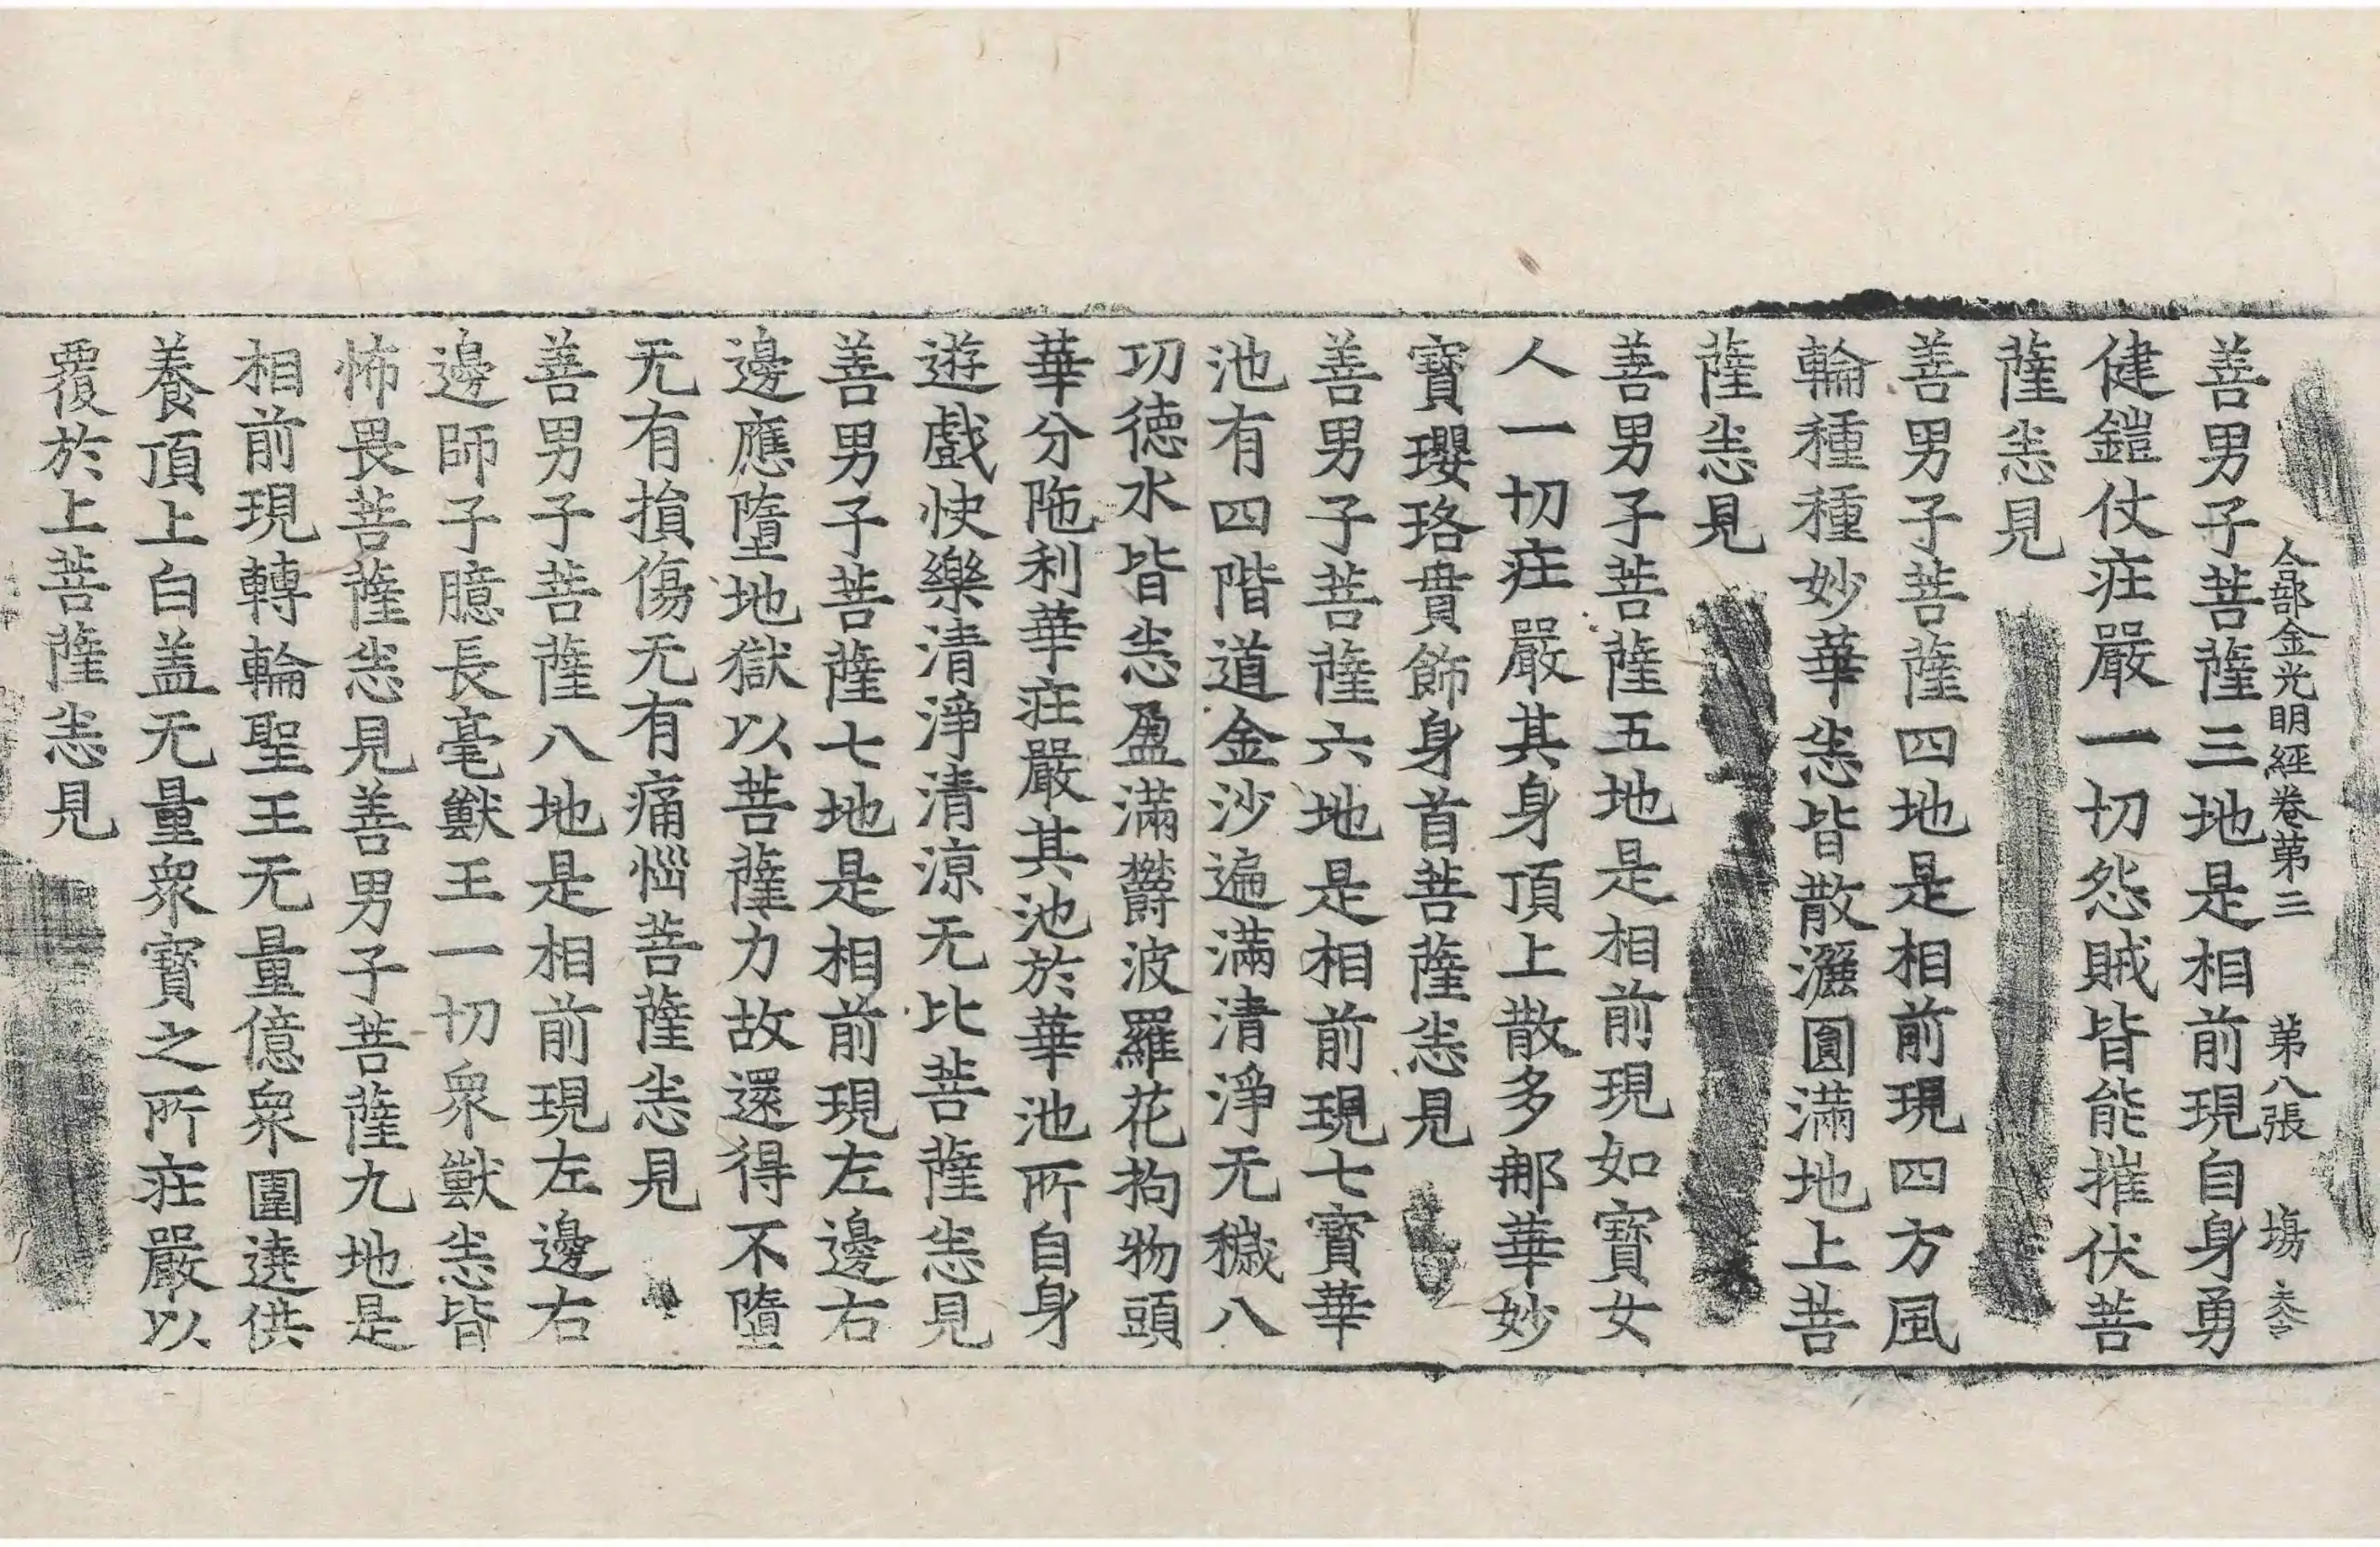 合部金光明經卷第三 第八張 場
善男子菩薩三地是相前現自身勇
健鎧仗莊嚴一切怨賊皆能摧伏菩
薩悉見
善男子菩薩四地是相前現四方風
輪種種妙華悉皆散灑圓滿地上菩
薩悉見
善男子菩薩五地是相前現如寶女
人一切莊嚴其身頂上散多那華妙
寶瓔珞貫飾身首菩薩悉見
善男子菩薩六地是相前現七寶華
池有四階道金沙遍滿清淨无穢八
功德水皆悉盈滿欝波羅花拘物頭
華分陁利華莊嚴其池於華池所自身
遊戲快樂清淨清涼无比菩薩悉見
善男子菩薩七地是相前現左邊右
邊應墮地獄以菩薩力故還得不墮
无有損傷无有痛惱菩薩悉見
善男子菩薩八地是相前現左邊右
邊師子臆長毫獸王一切衆獸悉皆
怖畏菩薩悉見善男子菩薩九地是
相前現轉輪聖王无量億衆圍遶供
養頂上白盖无量衆寶之所莊嚴以
覆於上菩薩悉見